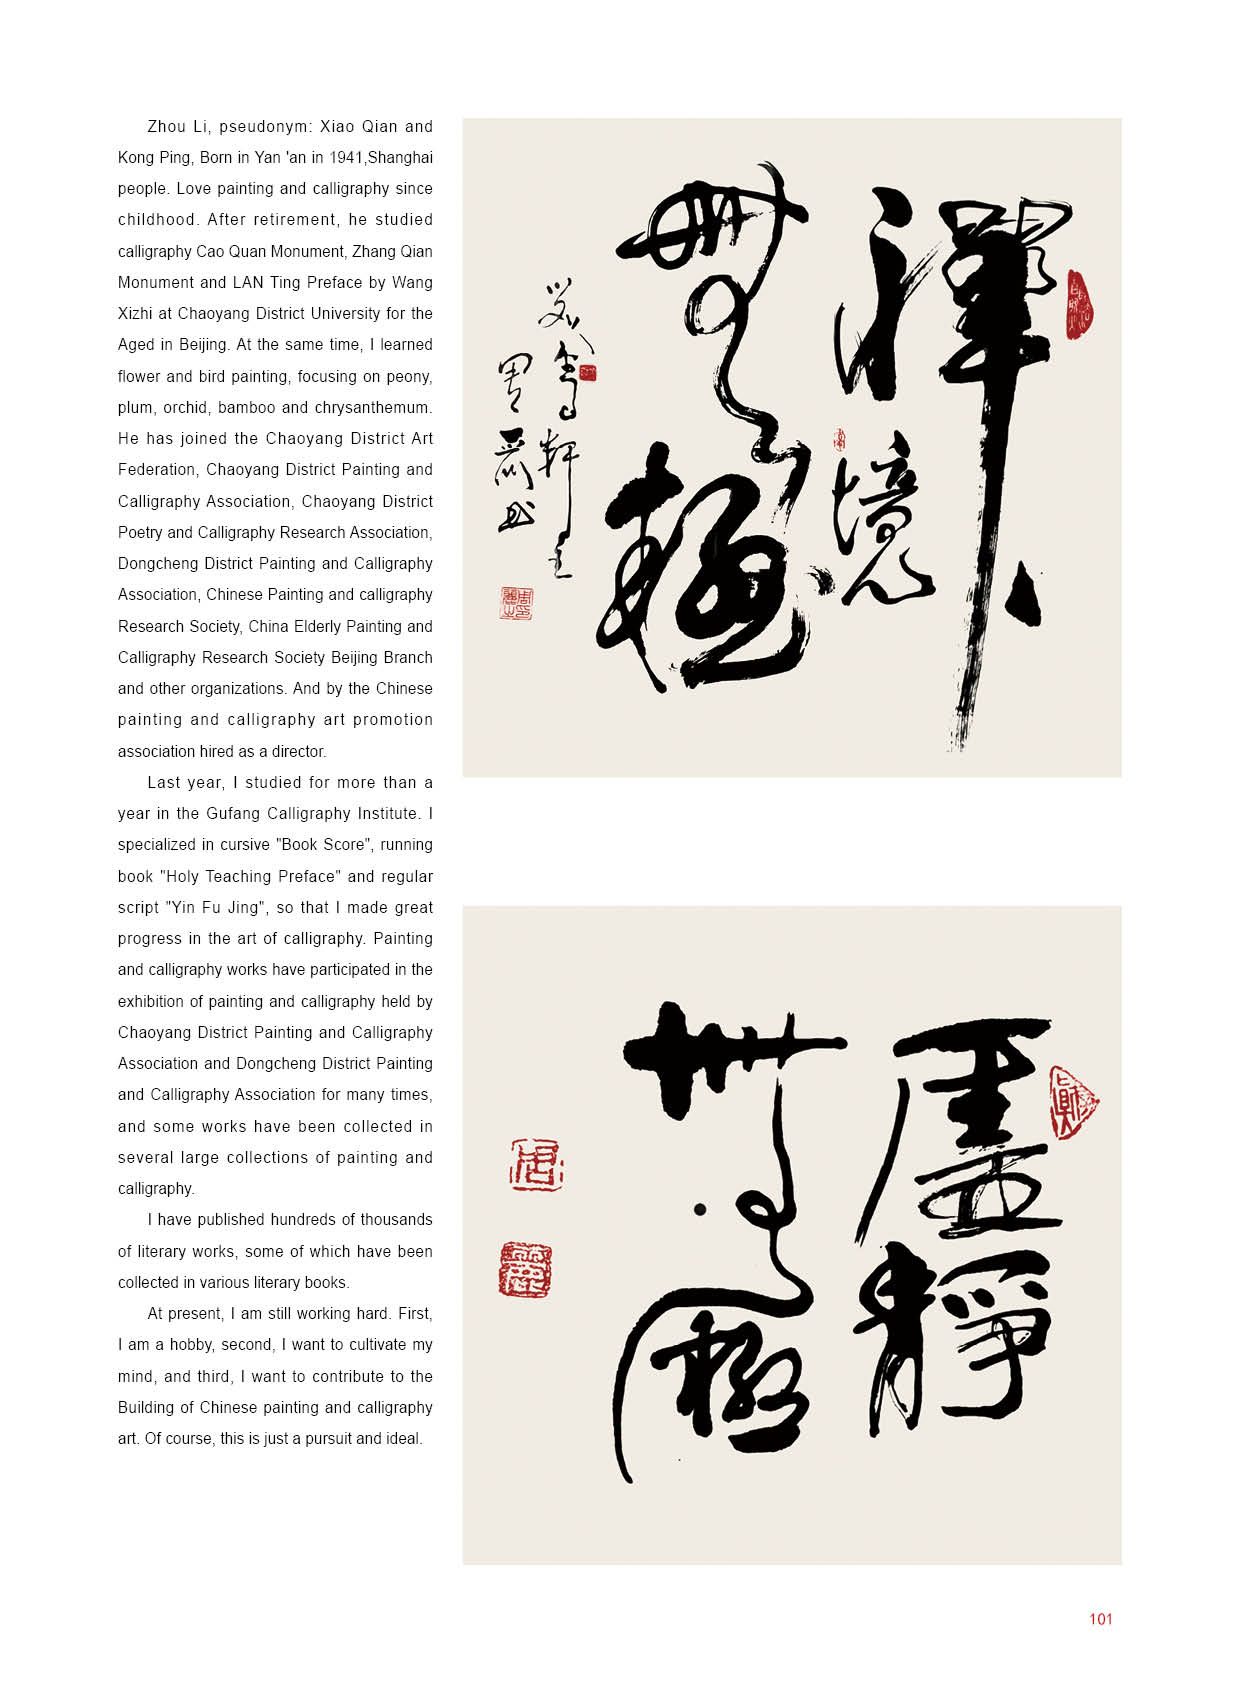 Zhou Li, pseudonym: Xiao Qian and
Kong Ping, Born in Yan 'an in 1941,Shanghai
people. Love painting and calligraphy since
childhood. After retirement, he studied
calligraphy Cao Quan Monument, Zhang Qian
Monument and LAN Ting Preface by Wang
Xizhi at Chaoyang District University for the
Aged in Beijing. At the same time, I learned
flower and bird painting, focusing on peony,
plum, orchid, bamboo and chrysanthemum.
He has joined the Chaoyang District Art
Federation, Chaoyang District Painting and
Calligraphy Association, Chaoyang District
Poetry and Calligraphy Research Association,
Dongcheng District Painting and Calligraphy
Association, Chinese Painting and calligraphy
Research Society, China Elderly Painting and
Calligraphy Research Society Beijing Branch
and other organizations. And by the Chinese
painting and calligraphy art promotion
association hired as a director.
Last year, I studied for more than a
year in the Gufang Calligraphy Institute. I
specialized in cursive "Book Score", running
book "Holy Teaching Preface" and regular
script "Yin Fu Jing", so that I made great
progress in the art of calligraphy. Painting
and calligraphy works have participated in the
exhibition of painting and calligraphy held by
Chaoyang District Painting and Calligraphy
Association and Dongcheng District Painting
and Calligraphy Association for many times,
and some works have been collected in
several large collections of painting and
calligraphy.
I have published hundreds of thousands
of literary works, some of which have been
collected in various literary books.
At present, I am still working hard. First,
I am a hobby, second, I want to cultivate my
mind, and third, I want to contribute to the
Building of Chinese painting and calligraphy
art. Of course, this is just a pursuit and ideal.
禪境
無極
軒主
周麗
虛靜
無極
周
麗
101